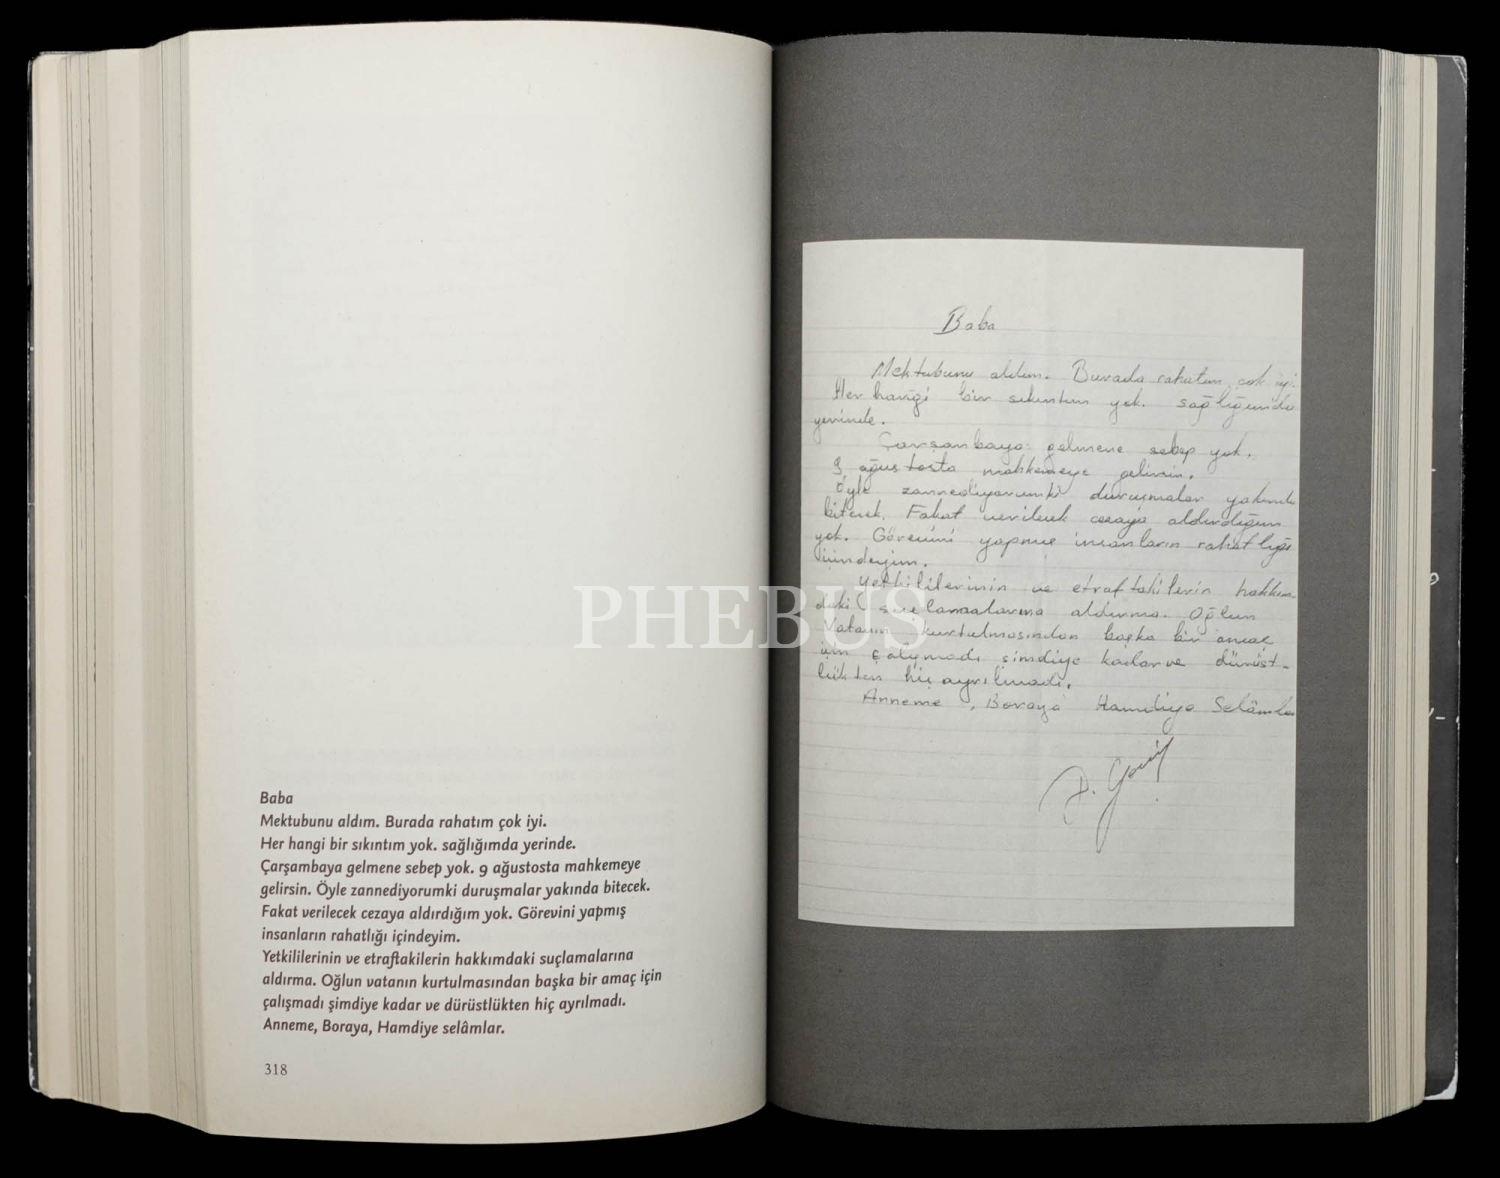 Baba
Mektubunu aldım. Burada rahatım çok iyi.
Her hangi bir sıkıntım yok. sağlığımda yerinde.
Çarşambaya gelmene sebep yok. 9 ağustosta mahkemeye
gelirsin. Öyle zannediyorumki duruşmalar yakında bitecek.
Fakat verilecek cezaya aldırdığım yok. Görevini yapmış
insanların rahatlığı içindeyim.
Yetkililerinin ve etraftakilerin hakkımdaki suçlamalarına
aldırma. Oğlun vatanın kurtulmasından başka bir amaç için
çalışmadı şimdiye kadar ve dürüstlükten hiç ayrılmadı.
Anneme, Boraya, Hamdiye selâmlar.
318
Baba
Mektubunu aldım. Burada rahatım çok iyi.
Her hangi bir sıkıntım yok. sağlığımda
yerinde.
Çarşanbaya gelmene sebep yok.
9 ağustosta mahkemeye gelirsin.
Öyle zannediyorumki duruşmalar yakında
bitecek. Fakat verilecek cezaya aldırdığım
yok. Görevini yapmış insanların rahatlığı
içindeyim.
Yetkililerinin ve etraftakilerin hakkım-
daki suçlamalarına aldırma. Oğlun
Vatanın kurtulmasından başka bir amaç
için çalışmadı şimdiye kadar ve dürüst-
lükten hiç ayrılmadı.
Anneme, Boraya Hamdiye Selâmla
PHEBUS